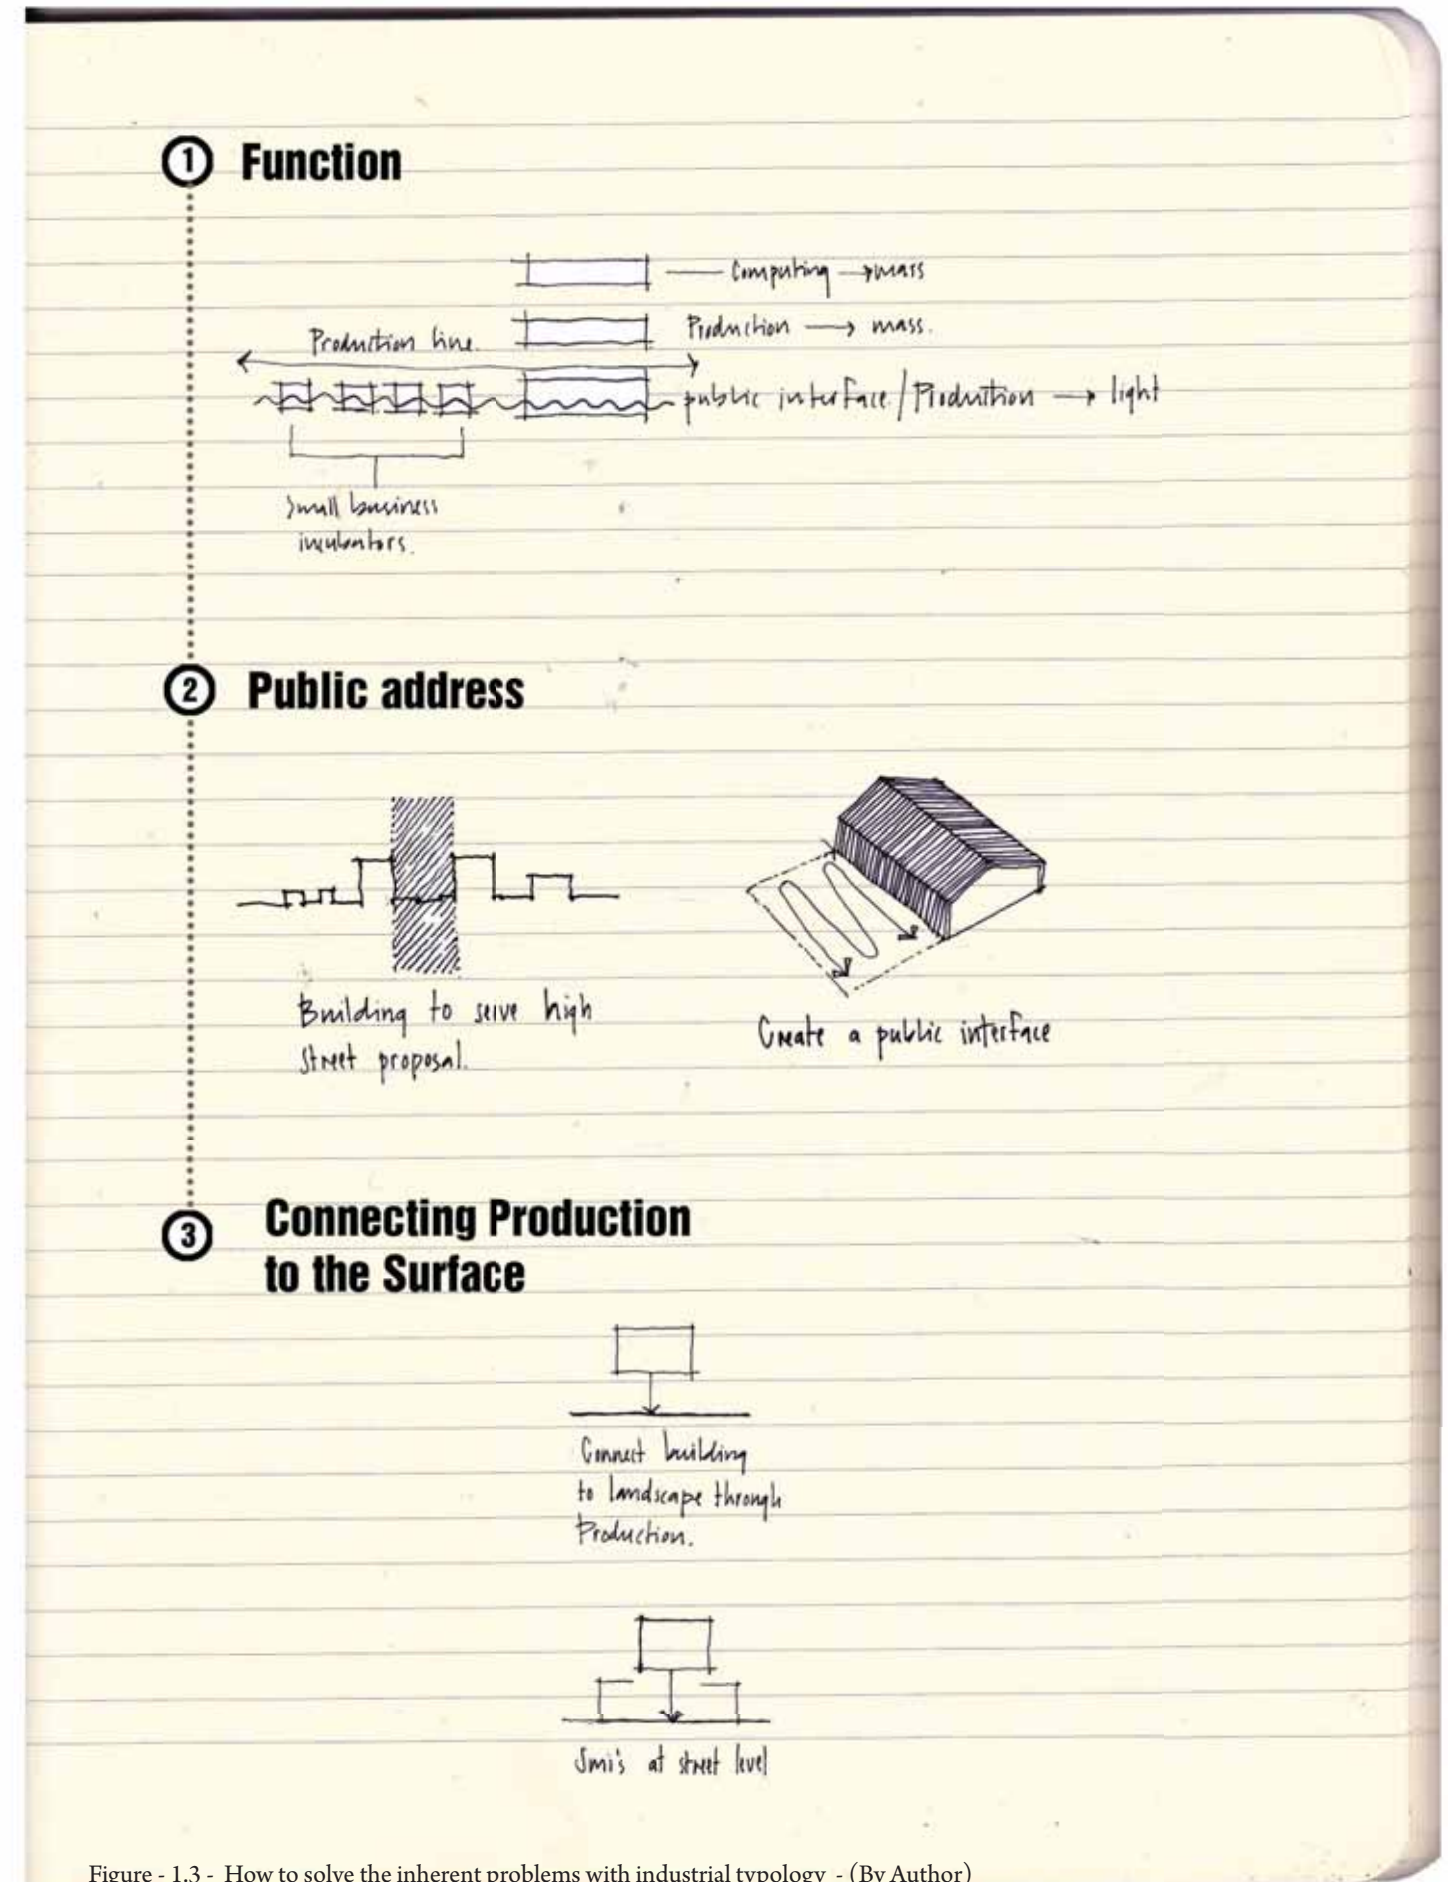 1 Function
Computing → mass
Production line.
Production → mass.
public interface / Production → light
Small business
incubators.
2 Public address
Building to serve high
street proposal.
Create a public interface
3 Connecting Production
to the Surface
Connect building
to landscape through
Production.
Smi's at street level
Figure - 1.3 - How to solve the inherent problems with industrial typology - (By Author)